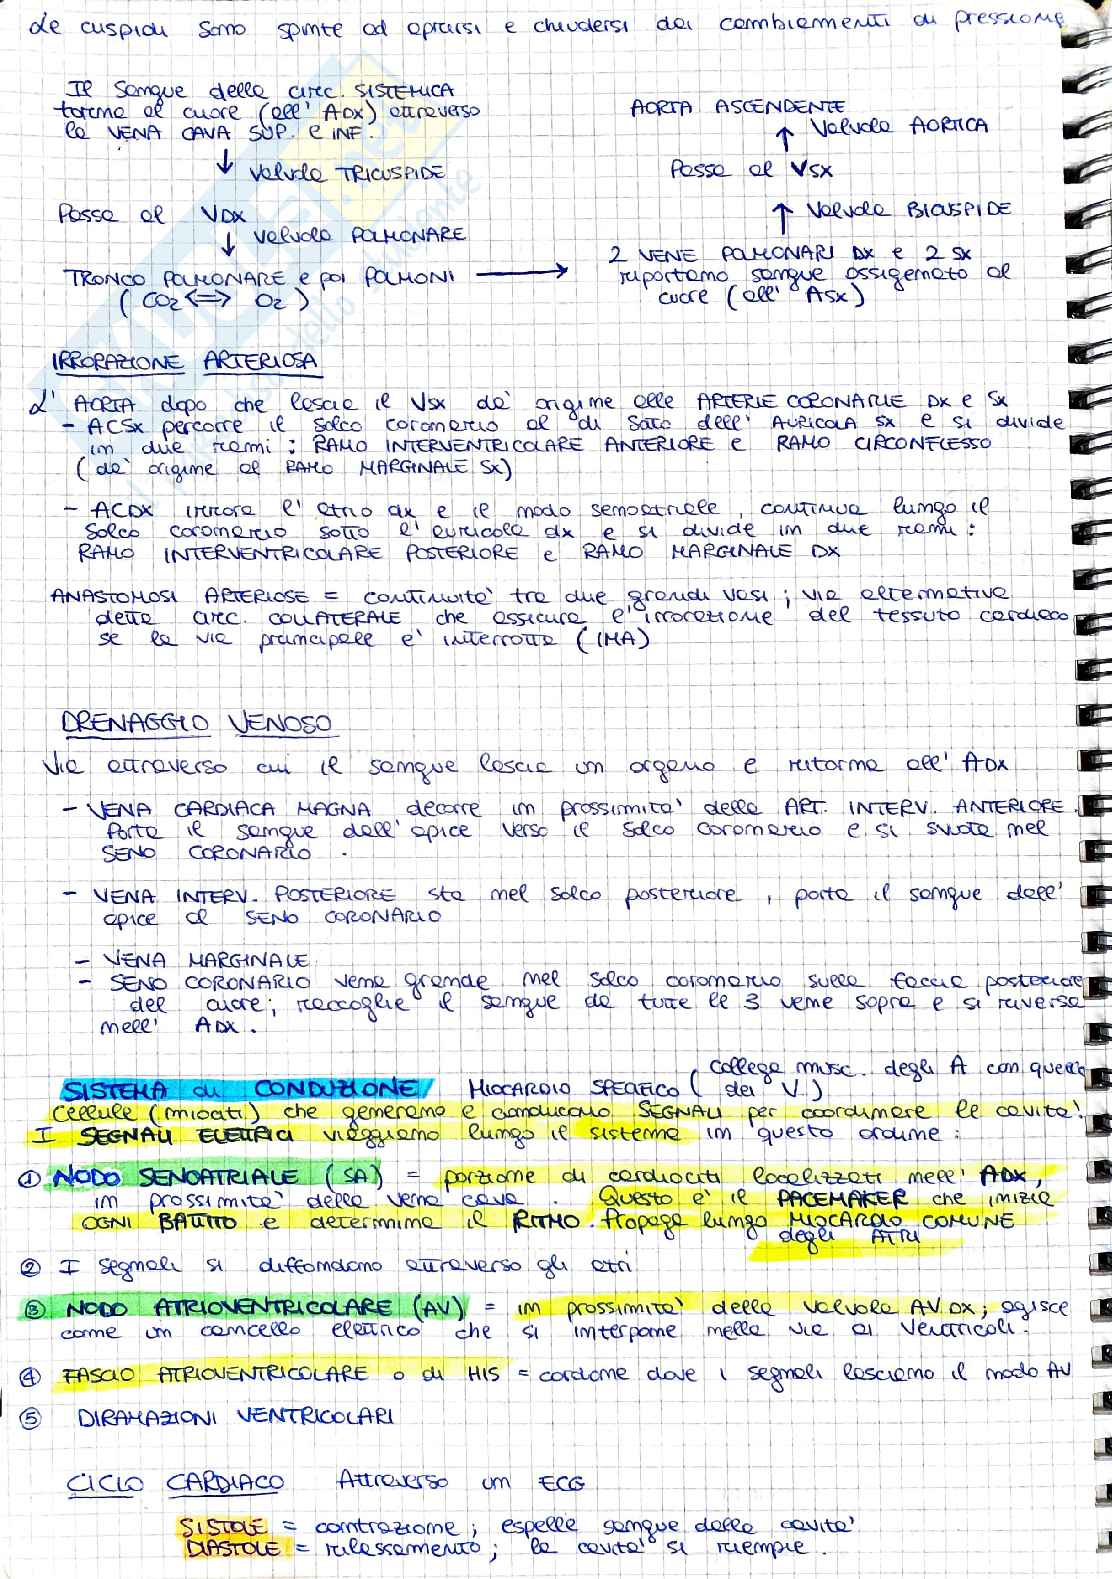 Le cuspidi sono spinte ad aprirsi e chiudersi dai cambiamenti di pressione
Il sangue della circ. SISTEMICA
torna al cuore (all' ADX) attraverso
la VENA CAVA SUP. e INF.
↓ Valvola TRICUSPIDE
Passa al VDX
↓ Valvola POLMONARE
TRONCO POLMONARE e poi POLMONI →
(CO2 <=> O2)
AORTA ASCENDENTE
↑ Valvola AORTICA
Passa al VSX
↑ Valvola BICUSPIDE
2 VENE POLMONARI DX e 2 SX
riportano sangue ossigenato al
cuore (all' ASX)
IRRORAZIONE ARTERIOSA
L' AORTA dopo che lascia il VSX da' origine alle ARTERIE CORONARIE DX e SX
- ACSX percorre il solco coronario al di sotto dell' AURICOLA SX e si divide
in due rami: RAMO INTERVENTRICOLARE ANTERIORE e RAMO CIRCONFLESSO
(da' origine al RAMO MARGINALE SX)
- ACDX irrora l' atrio dx e il nodo senoatriale, continua lungo il
solco coronario sotto l' auricola dx e si divide in due rami:
RAMO INTERVENTRICOLARE POSTERIORE e RAMO MARGINALE DX
ANASTOMOSI ARTERIOSE = continuita' tra due grandi vasi; via alternativa
detta circ. COLLATERALE che assicura l'irrorazione del tessuto cardiaco
se la via principale e' interrotta (IMA)
DRENAGGIO VENOSO
Via attraverso cui il sangue lascia un organo e ritorna all' ADX
- VENA CARDIACA MAGNA decorre in prossimita' della ART. INTERV. ANTERIORE.
Porta il sangue dall'apice verso il solco coronario e si svuota nel
SENO CORONARIO.
- VENA INTERV. POSTERIORE sta nel solco posteriore, porta il sangue dall'
apice al SENO CORONARIO
- VENA MARGINALE
- SENO CORONARIO vena grande nel solco coronario sulla faccia posteriore
del cuore; raccoglie il sangue da tutte le 3 vene sopra e si riversa
nell' ADX.
SISTEMA di CONDUZIONE / MIOCARDIO SPECIFICO (collega musc. degli A con quella
dei V.)
Cellule (miociti) che generano e conducono SEGNALI per coordinare le cavita'.
I SEGNALI ELETTRICI viaggiano lungo il sistema in questo ordine:
① NODO SENOATRIALE (SA) = porzione di cardiociti localizzati nell' ADX,
in prossimita' della vena cava. Questo e' il PACEMAKER che inizia
OGNI BATTITO e determina il RITMO. Propaga lungo MIOCARDIO COMUNE
degli ATRI
② I segnali si diffondono attraverso gli atri
③ NODO ATRIOVENTRICOLARE (AV) = in prossimita' della valvola AV DX; agisce
come un cancello elettrico che si interpone nella via ai ventricoli.
④ FASCIO ATRIOVENTRICOLARE o di HIS = cordone dove i segnali lasciano il nodo AV
⑤ DIRAMAZIONI VENTRICOLARI
CICLO CARDIACO Attraverso un ECG
SISTOLE = contrazione; espelle sangue dalla cavita'
DIASTOLE = rilassamento; la cavita' si riempie.